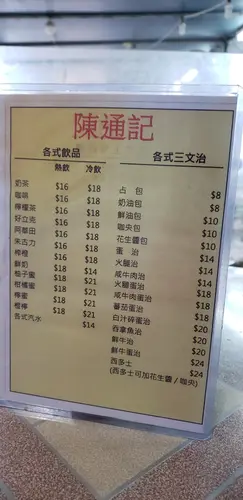 陳通記
各式飲品
熱飲 冷飲
奶茶 $16 $18
咖啡 $16 $18
檸檬茶 $16 $18
好立克 $16 $18
阿華田 $16 $18
朱古力 $16 $18
$16 $18
鮮奶 $14 $18
柚子蜜 $18 $21
柑橘蜜 $18 $21
檸蜜 $18 $21
橙檸 $18 $21
各式汽水 $14
各式三文治
占 包 $8
奶油包 $8
鮮油包 $10
咖央包 $10
花生醬包 $10
蛋 治 $14
火腿治 $14
咸牛肉治 $14
火腿蛋治 $18
咸牛肉蛋治 $18
蕃茄蛋治 $18
白汁碎蛋治 $20
吞拿魚治 $20
鮮牛治 $20
鮮牛蛋治 $24
西多士 $24
(西多士可加花生醬/咖央)